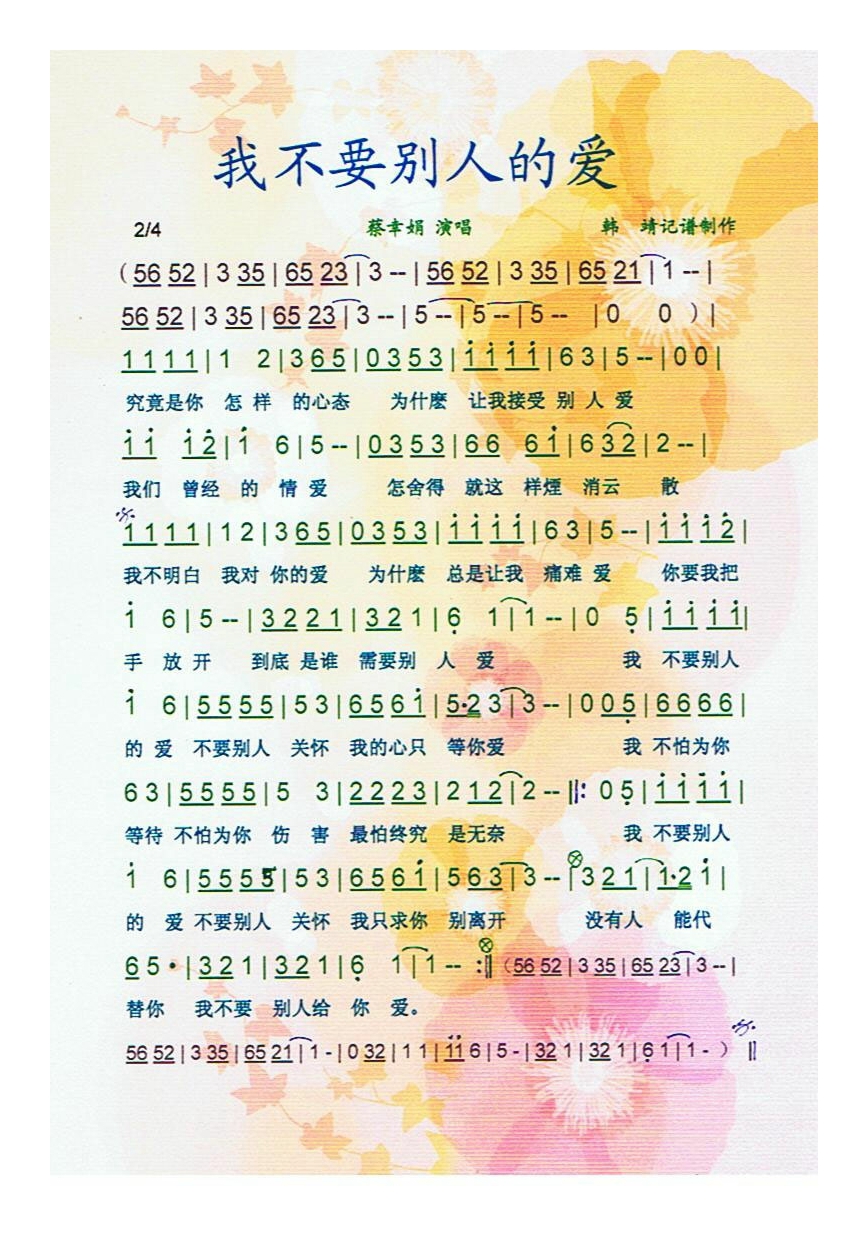 我不要别人的爱
2/4 蔡幸娟 演唱 韩 靖记谱制作
( 56 52 | 3 35 | 65 23 | 3 -- | 56 52 | 3 35 | 65 21 | 1 -- |
56 52 | 3 35 | 65 23 | 3 -- | 5 -- | 5 -- | 5 -- | 0 0 ) |
1 1 1 1 | 1 2 | 3 6 5 | 0 3 5 3 | i i i i | 6 3 | 5 -- | 0 0 |
究竟是你 怎 样 的心态 为什麽 让我接受 别 人 爱
i i i 2̇ | i 6 | 5 -- | 0 3 5 3 | 6 6 6 i | 6 3 2 | 2 -- |
我们 曾经 的 情 爱 怎舍得 就这 样煙 消云 散
1 1 1 1 | 1 2 | 3 6 5 | 0 3 5 3 | i i i i | 6 3 | 5 -- | i i i 2̇ |
我不明白 我对 你的爱 为什麽 总是让我 痛难 爱 你要我把
i 6 | 5 -- | 3 2 2 1 | 3 2 1 | 6̣ 1 | 1 -- | 0 5̣ | i i i i |
手 放 开 到底 是谁 需要别 人 爱 我 不要别人
i 6 | 5 5 5 5 | 5 3 | 6 5 6 i | 5·2 3 | 3 -- | 0 0 5̣ | 6 6 6 6 |
的 爱 不要别人 关怀 我的心只 等你爱 我 不怕为你
6 3 | 5 5 5 5 | 5 3 | 2 2 2 3 | 2 1 2 | 2 -- ‖: 0 5̣ | i i i i |
等待 不怕为你 伤 害 最怕终究 是无奈 我 不要别人
i 6 | 5 5 5 5 | 5 3 | 6 5 6 i | 5 6 3 | 3 -- | 3 2 1 | 1·2 i |
的 爱 不要别人 关怀 我只求你 别离开 没有人 能代
6 5 · | 3 2 1 | 3 2 1 | 6̣ 1 | 1 -- :‖ ( 56 52 | 3 35 | 65 23 | 3 -- |
替你 我不要 别人给 你 爱。
56 52 | 3 35 | 65 21 | 1 - | 0 32 | 1 1 | i i 6 | 5 - | 32 1 | 32 1 | 6̣ 1 | 1 - ) ‖